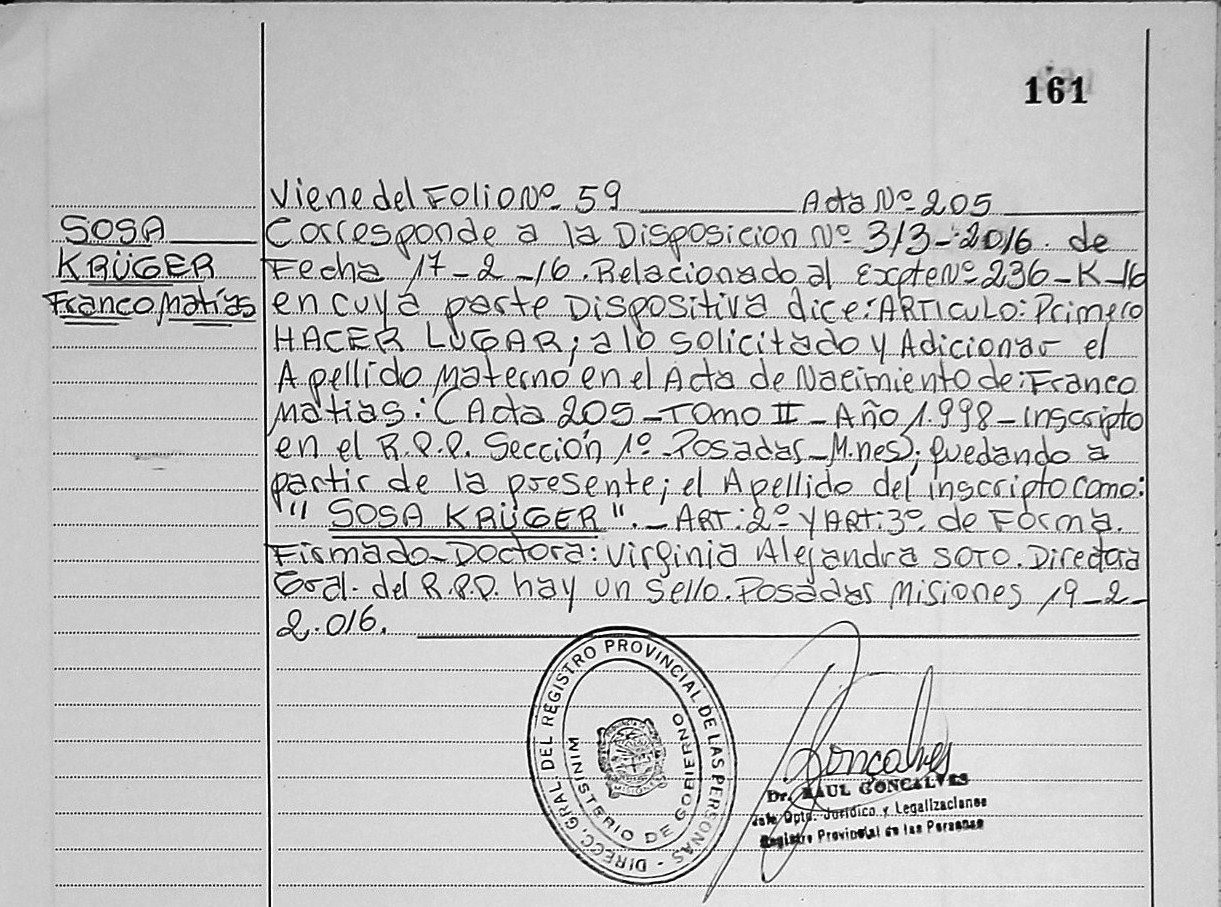 161
Viene del Folio Nº 59 Acta Nº 205
SOSA
KRÜGER
Franco Matías
Corresponde a la Disposicion Nº 313-2016. de
Fecha 17-2-16. Relacionado al Expte Nº 236-K-16
en cuya parte Dispositiva dice: ARTICULO: Primero
HACER LUGAR; a lo solicitado y Adicionar el
Apellido Materno en el Acta de Nacimiento de: Franco
Matias: (Acta 205-Tomo II-Año 1.998-inscripto
en el R.P.P. Sección 1º-Posadas-M.nes); quedando a
partir de la presente; el Apellido del inscripto como:
"SOSA KRÜGER".- ART: 2º Y ART: 3º. de Forma.
Firmado-Doctora: Virginia Alejandra SOTO. Directora
Gral. del R.P.P. hay un sello. Posadas Misiones 19-2-
2.016.
DIRECC. GRAL DEL REGISTRO PROVINCIAL DE LAS PERSONAS -
MINISTERIO DE GOBIERNO
MISIONES
Goncalves
Dr. RAUL GONCALVES
Jefe Dpto. Jurídico y Legalizaciones
Registro Provincial de las Personas